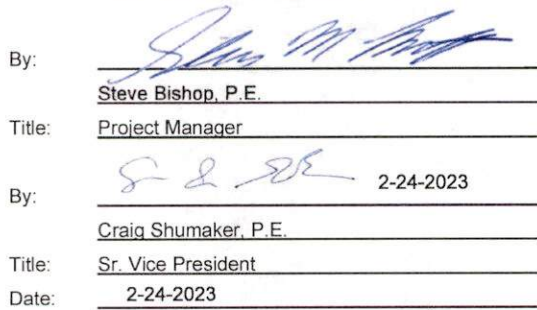 By:
Steve Bishop, P.E.
Title: Project Manager
By: 2-24-2023
Craig Shumaker, P.E.
Title: Sr. Vice President
Date: 2-24-2023